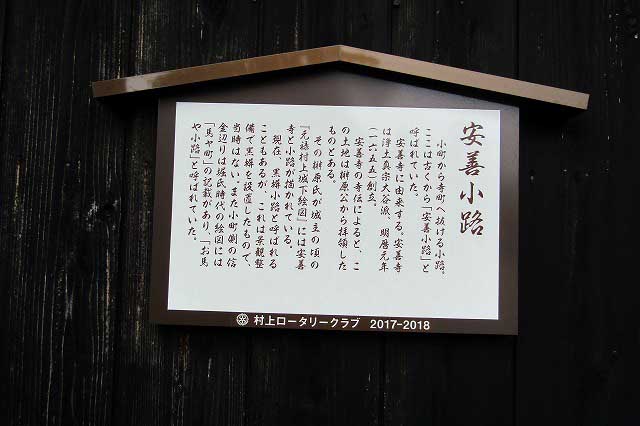 安善小路
小町から寺町へ抜ける小路。
ここは古くから「安善小路」と
呼ばれていた。
安善寺に由来する。安善寺
は浄土真宗大谷派、明暦元年
(一六五五)創立。
安善寺の寺伝によると、こ
の土地は榊原公から拝領した
ものとある。
その榊原氏が城主の頃の
『元禄村上城下絵図』には安善
寺と小路が描かれている。
現在、黒塀小路と呼ばれる
こともあるが、これは景観整
備で黒塀を設置したもので、
当時はない。また小町側の信
金辺りは堀氏時代の絵図には
「馬ヤ町」の記載があり、「お馬
や小路」と呼ばれていた。
村上ロータリークラブ 2017-2018